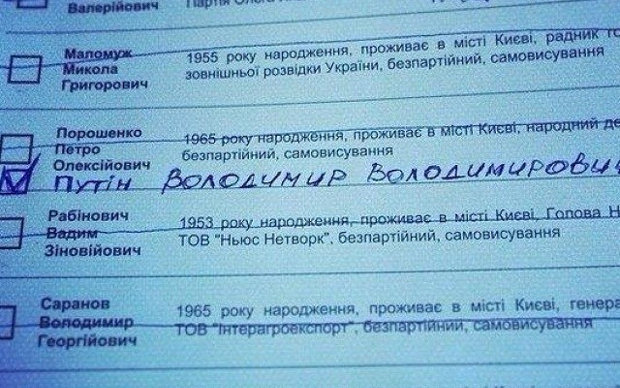 Валерійович
Маломуж
Микола
Григорович
1955 року народження, проживає в місті Києві, радник го
зовнішньої розвідки України, безпартійний, самовисування
Порошенко
Петро
Олексійович
1965 року народження, проживає в місті Києві, народний де
безпартійний, самовисування
Путін Володимир Володимирович
Рабінович
Вадим
Зіновійович
1953 року народження, проживає в місті Києві, Голова Н
ТОВ "Ньюс Нетворк", безпартійний, самовисування
Саранов
Володимир
Георгійович
1965 року народження, проживає в місті Києві, генера
ТОВ "Інтерагроекспорт", безпартійний, самовисування